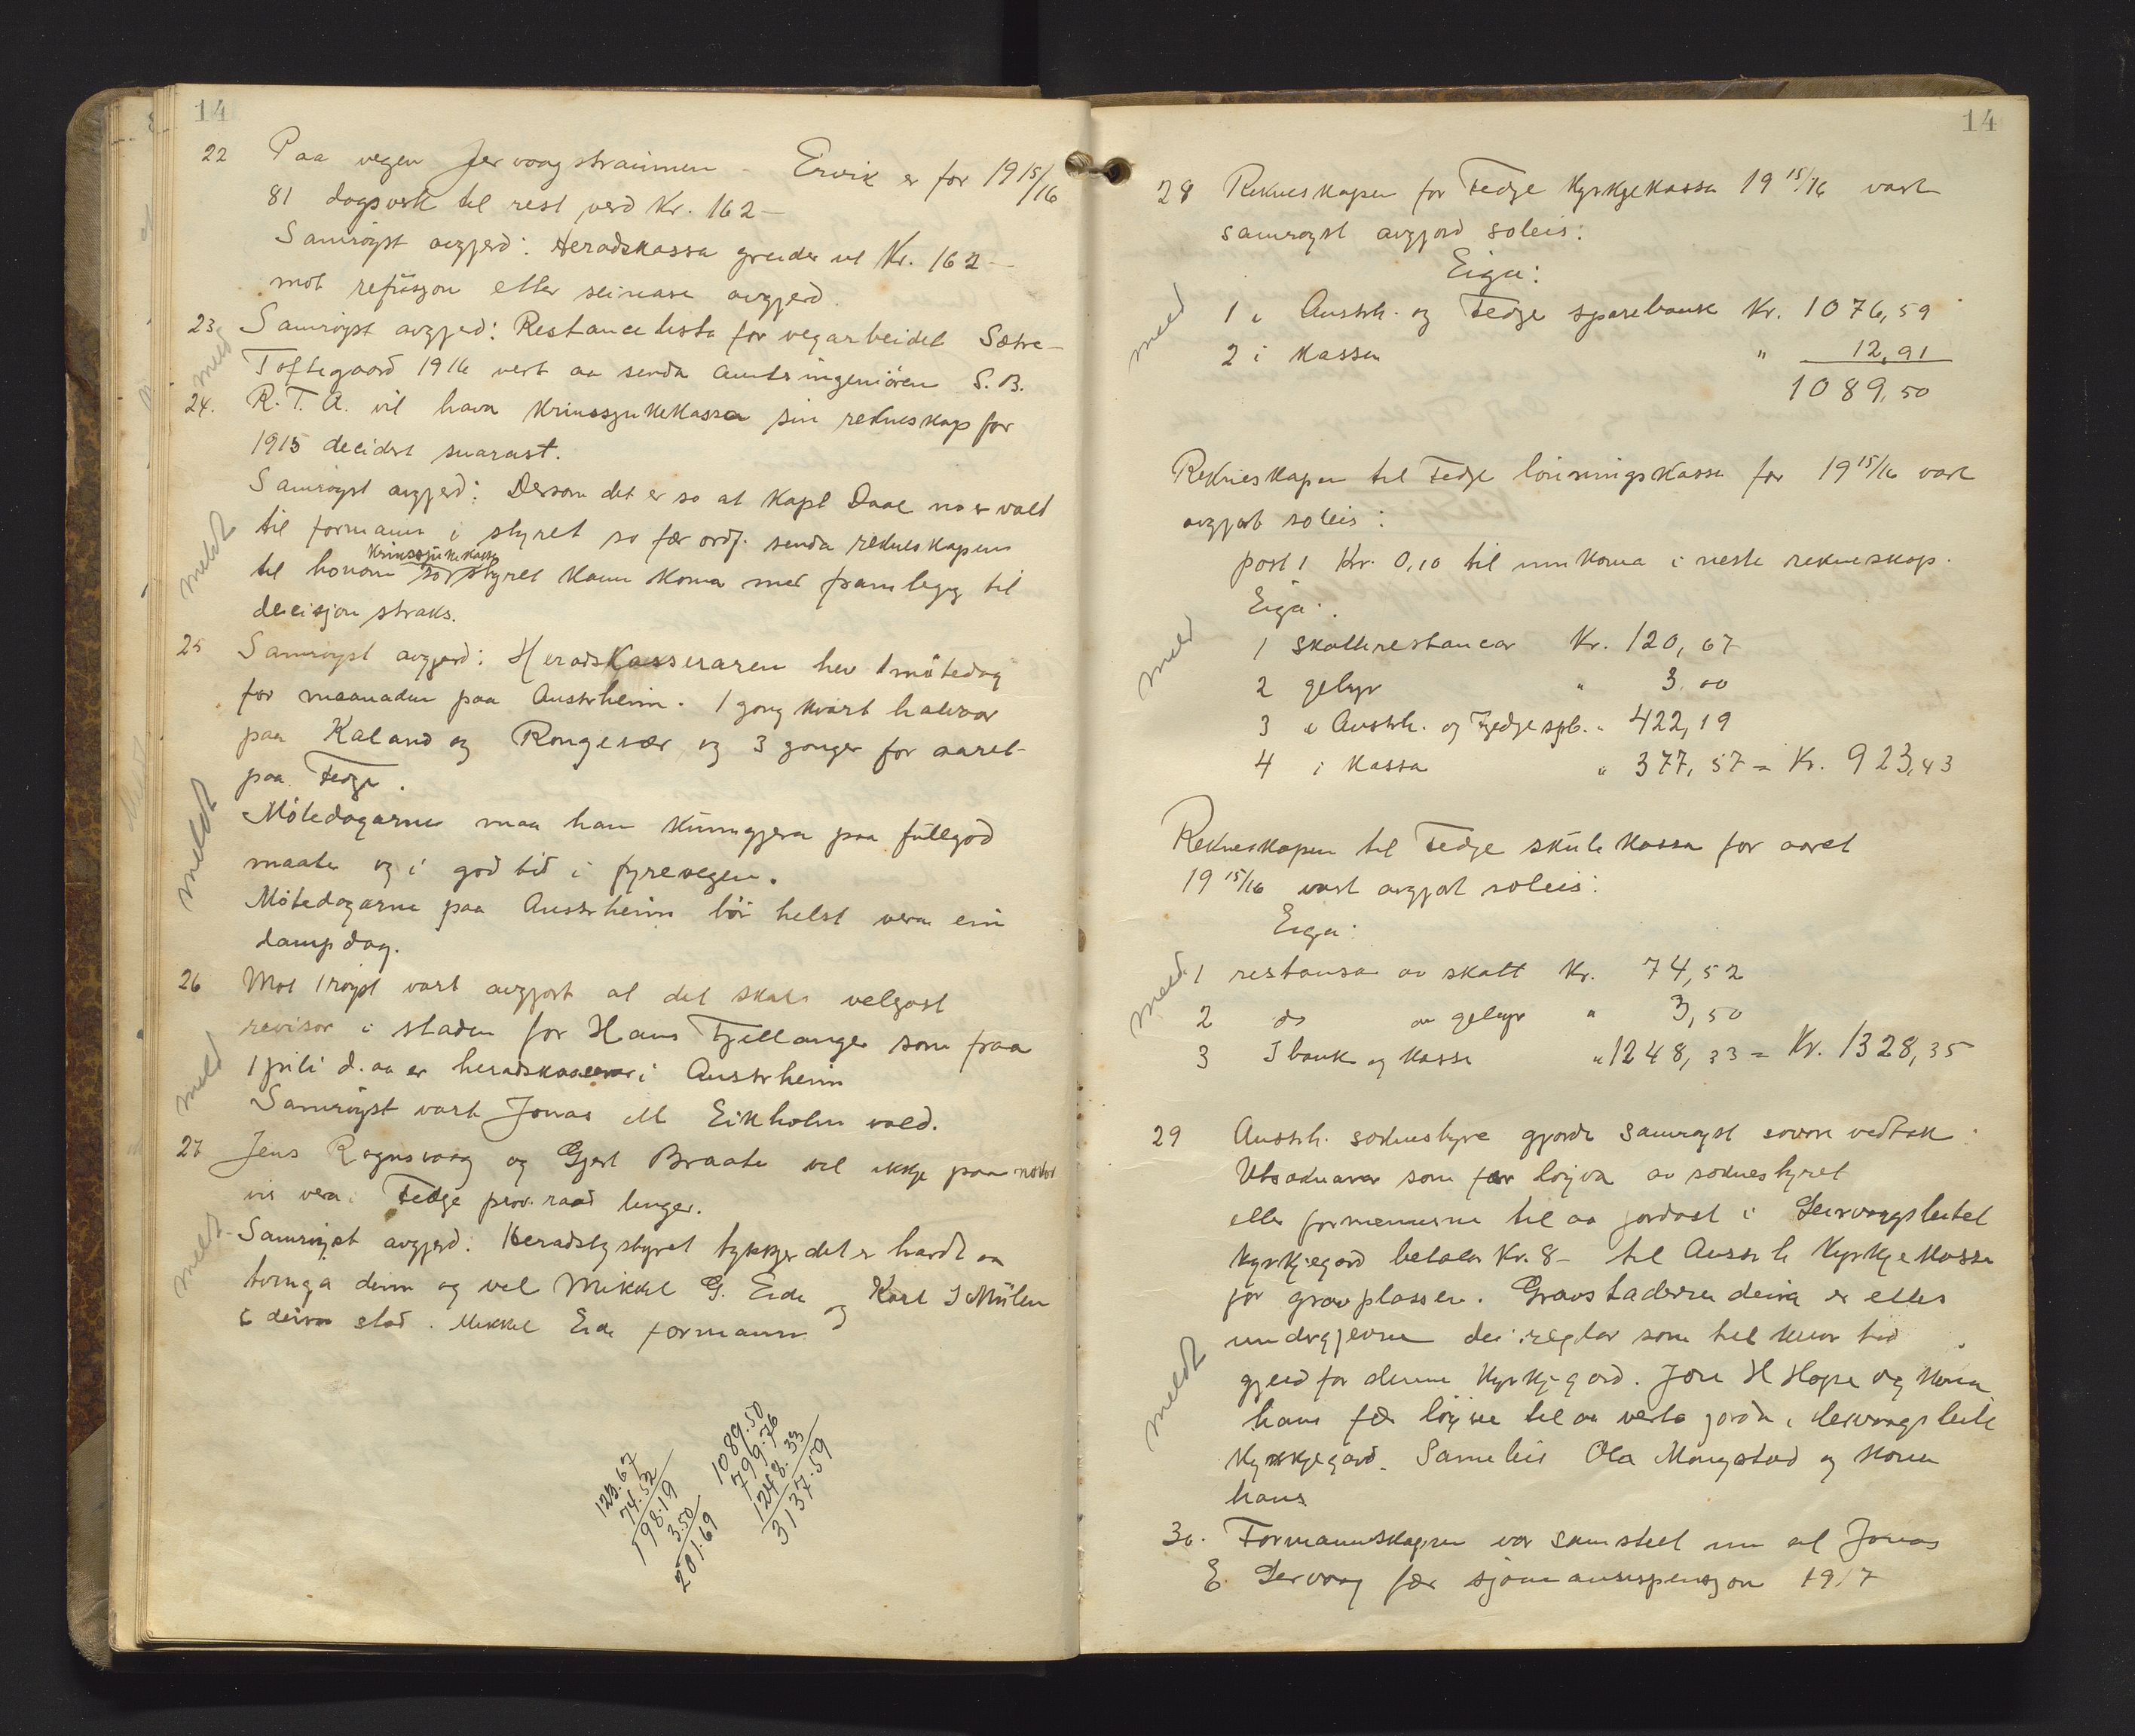 14
22 Paa vegen Jervaagstraumen - Ervik er for 19 15/16
81 dagsverk til rest verd Kr. 162 —
Samrøyst avgjerd: Heradskassa greider ut Kr. 162 —
mot refusjon etter seinare avgjerd.
23 Samrøyst avgjerd: Restancelista for vegarbeidet Sætre-
Toftegaard 1916 vert aa senda amtsingeniøren S. B.
24. R.T.A. vil hava Krinssjukekassa sin rekneskap for
1915 decidert snarast.
Samrøyst avgjerd: Dersom det er so at Kapt Daae no er vald
til formann i styret so fær ordf. senda rekneskapen
til honom so krinssjukekasse styret kann koma med framlegg til
decisjon straks.
25 Samrøyst avgjerd: Heradskasseraren hev 1 møtedag
for maanaden paa Austrheim. 1 gong kvart halvaar
paa Kaland og Rongevær og 3 gonger for aaret
paa Fedje.
Møtedagarne maa han kunngjera paa fullgod
maate og i god tid i fyrevegen.
Møtedagarne paa Austrheim bör helst vera ein
dampdag.
26 Mot 1 røyst vart avgjort at det skal veljast
revisor i staden for Hans Fjellanger som fraa
1 juli d. aa er heradskasserar i Austrheim
Samrøyst vart Jonas M Eikholm vald.
27 Jens Rognsvaag og Gjert Braate vil ikkje paa nokor
vis vera i Fedje prov.raad lenger.
Samrøyst avgjerd: Heradstyret tykkjer det er hardt aa
tvinga deim og vel Mikkel G. Eide og Karl J Mulen
i deira stad. Mikkel Eide formann
meld
meldt
meldt
meld
meldt
123.67
74.52
198.19
3.50
201.69
1089.50
799.76
1248.33
3137.59
14
28 Rekneskapen for Fedje Kyrkjekassa 19 15/16 vart
samrøyst avgjord soleis:
Eiga:
1 i Austrh. og Fedje sparebank Kr. 1076,59
2 i Kassen " 12,91
1089,50
Rekneskapen til Fedje lönningskassa for 19 15/16 vart
avgjort soleis:
post 1 Kr. 0,10 til innkoma i neste rekneskap.
Eiga:
1 skatterestancar Kr. 120,67
2 gebyr " 3.00
3 i Austrh. og Fedje spb. " 422,19
4 i Kassa " 377,57 = Kr. 923,43
Rekneskapen til Fedje skule kassa for aaret
19 15/16 vart avgjort soleis:
Eiga:
1 restansa av skatt Kr. 74,52
2 do av gebyr " 3,50
3 I bank og Kassa " 1248,33 = Kr. 1328,35
29 Austrh. soknestyre gjorde samrøyst sovore vedtak:
Utsoknarar som fær löyva av soknestyret
eller formennerne til aa jordast i Leirvaagsleitet
kyrkjegard betalar Kr. 8 - til Austrh Kyrkjekassa
for gravplassen. Gravstaderne deira er elles
undergjevne dei reglar som til kvar tid
gjeld for denne Kyrkjegard. Jon H Hope og Kona
hans fær löyve til aa verta jorda i Leirvaagsleite
Kyrkjegard. Sameleis Ola Mongstad og Kona
hans.
30. Formannskapen var samstelt um at Jonas
E. Lervaag fær sjömannspensjon 1917
meld
meld
meld
meldt